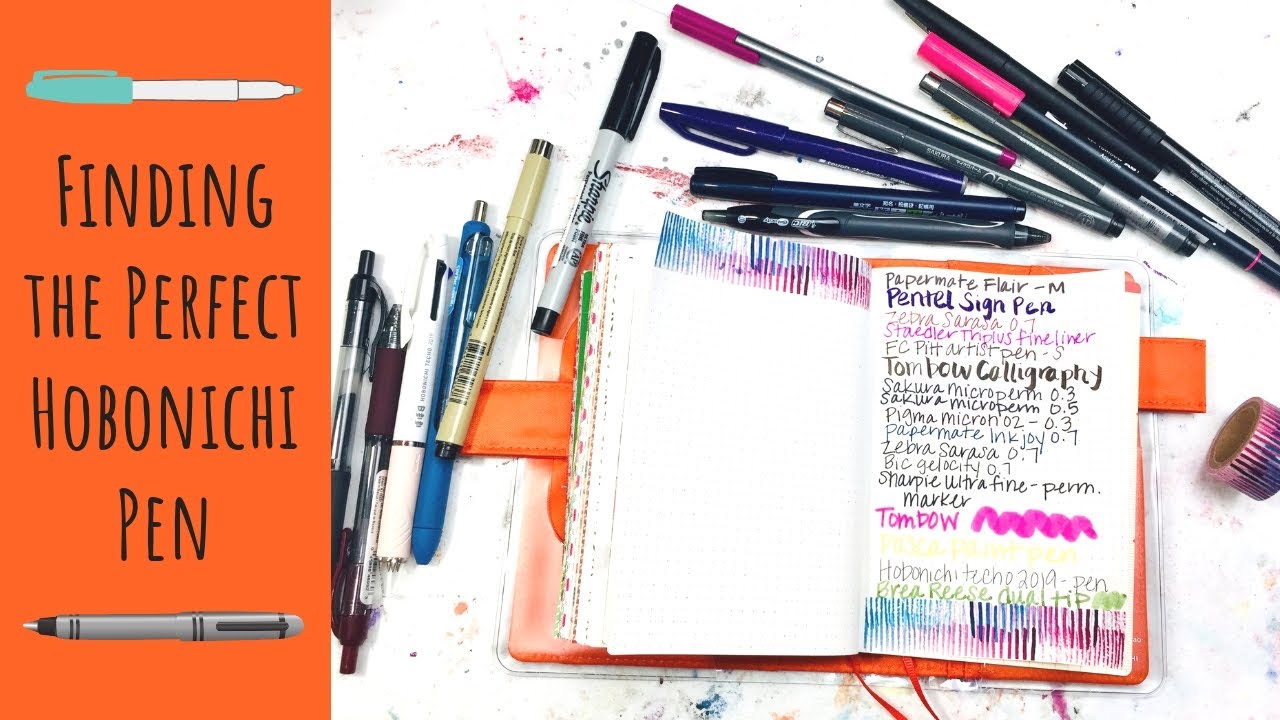 Finding
the Perfect
Hobonichi
Pen
Sharpie
HOBONICHI TECHO 2019
SAKURA
05
Papermate Flair - M
Pentel Sign Pen
Zebra Sarasa 0.7
Staedler Triplus fineliner
FC Pitt artist pen - S
Tombow Calligraphy
Sakura microperm 0.3
Sakura microperm 0.5
Pigma micron 02 - 0.3
Papermate Inkjoy 0.7
Zebra Sarasa 0.7
Bic gelocity 0.7
Sharpie ultra fine - perm.
marker
Tombow
Posca paint pen
Hobonichi techo 2019 - pen
Brea Reese dual tip